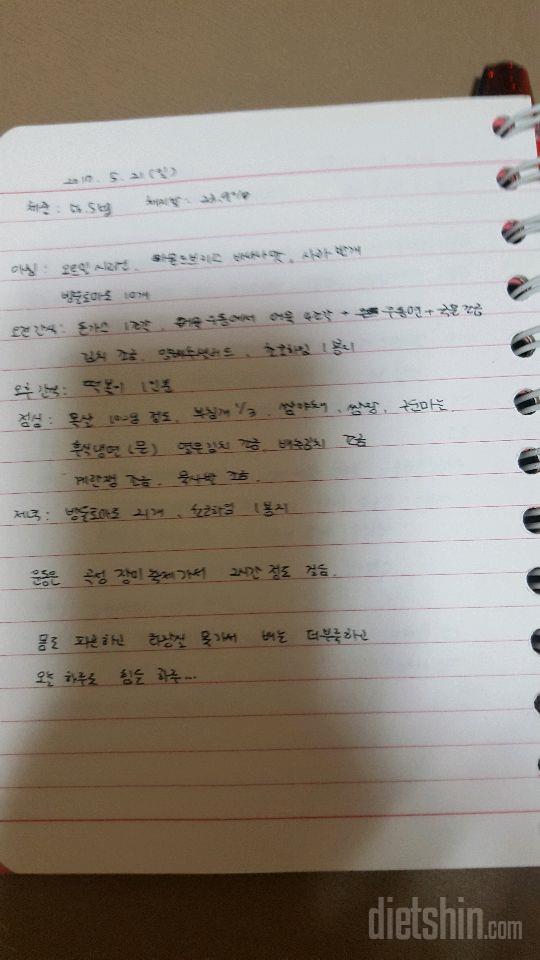 2017. 5. 21 (일)
체중 : 56.5kg 체지방 : 23.9%
아침 : 오트밀 시리얼, 아몬드브리즈 바나나맛, 사과 반개
방울토마토 10개
오전간식 : 돈가스 1조각, 우동에서 어묵 4조각 + 우동면 + 국물 조금
김치 조금, 양배추샐러드, 초코하임 1봉지
오후간식 : 떡볶이 1인분
점심 : 목살 100g 정도, 부침개 1/3, 쌈야채, 쌈장, 구운마늘
후식냉면 (물) 열무김치 조금, 배추김치 조금
계란찜 조금, 묵사발 조금.
저녁 : 방울토마토 21개, 초코하임 1봉지
운동은 곡성 장미축제가서 2시간 정도 걸음.
몸도 피곤하신 화장실 못가서 배는 더부룩하신
오늘 하루도 힘든 하루...
dietshin.com